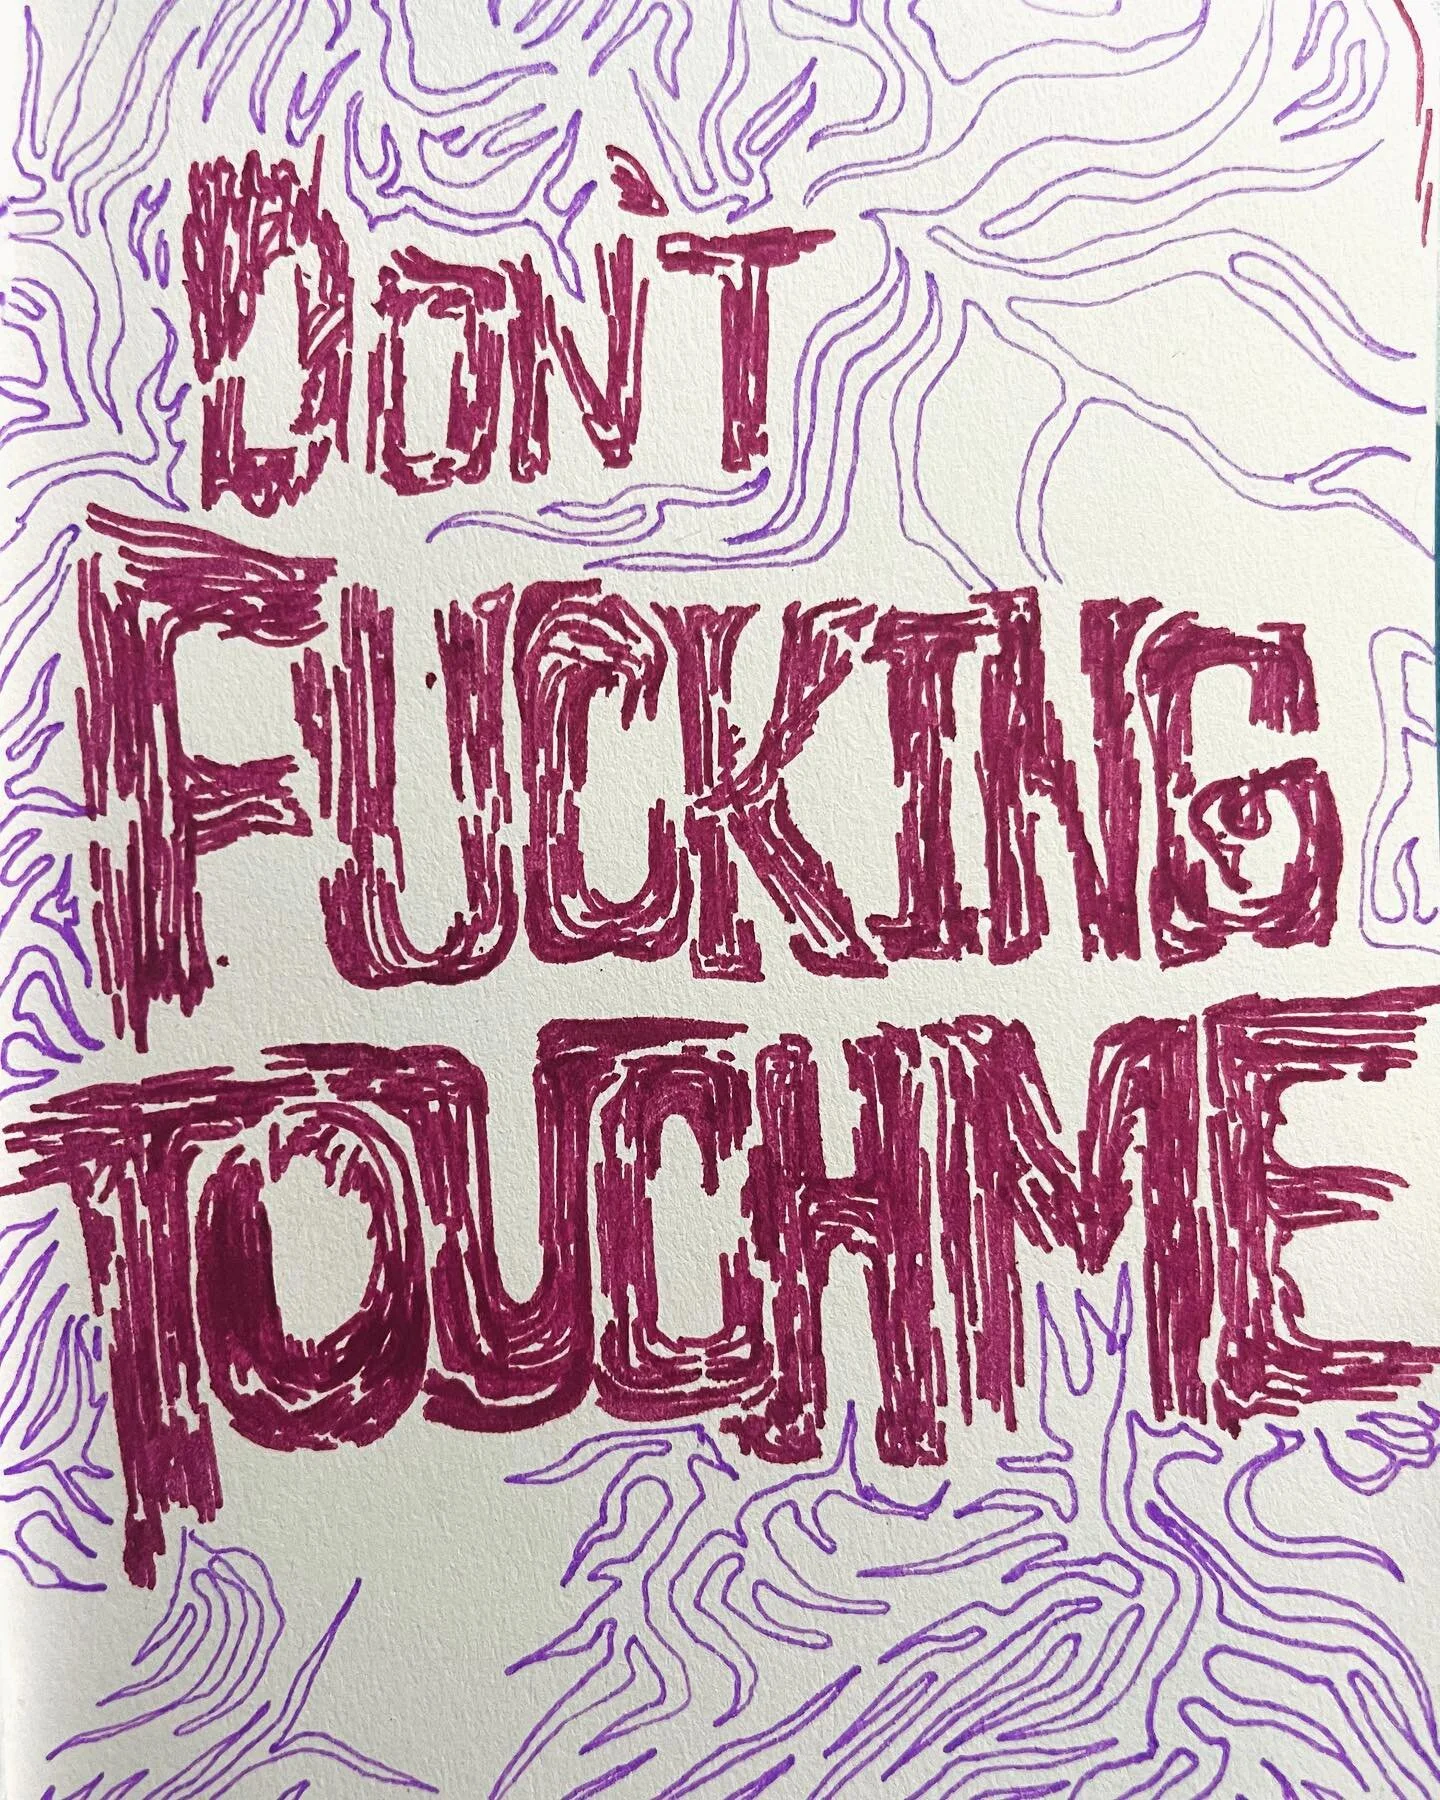 DON'T
FUCKING
TOUCH ME